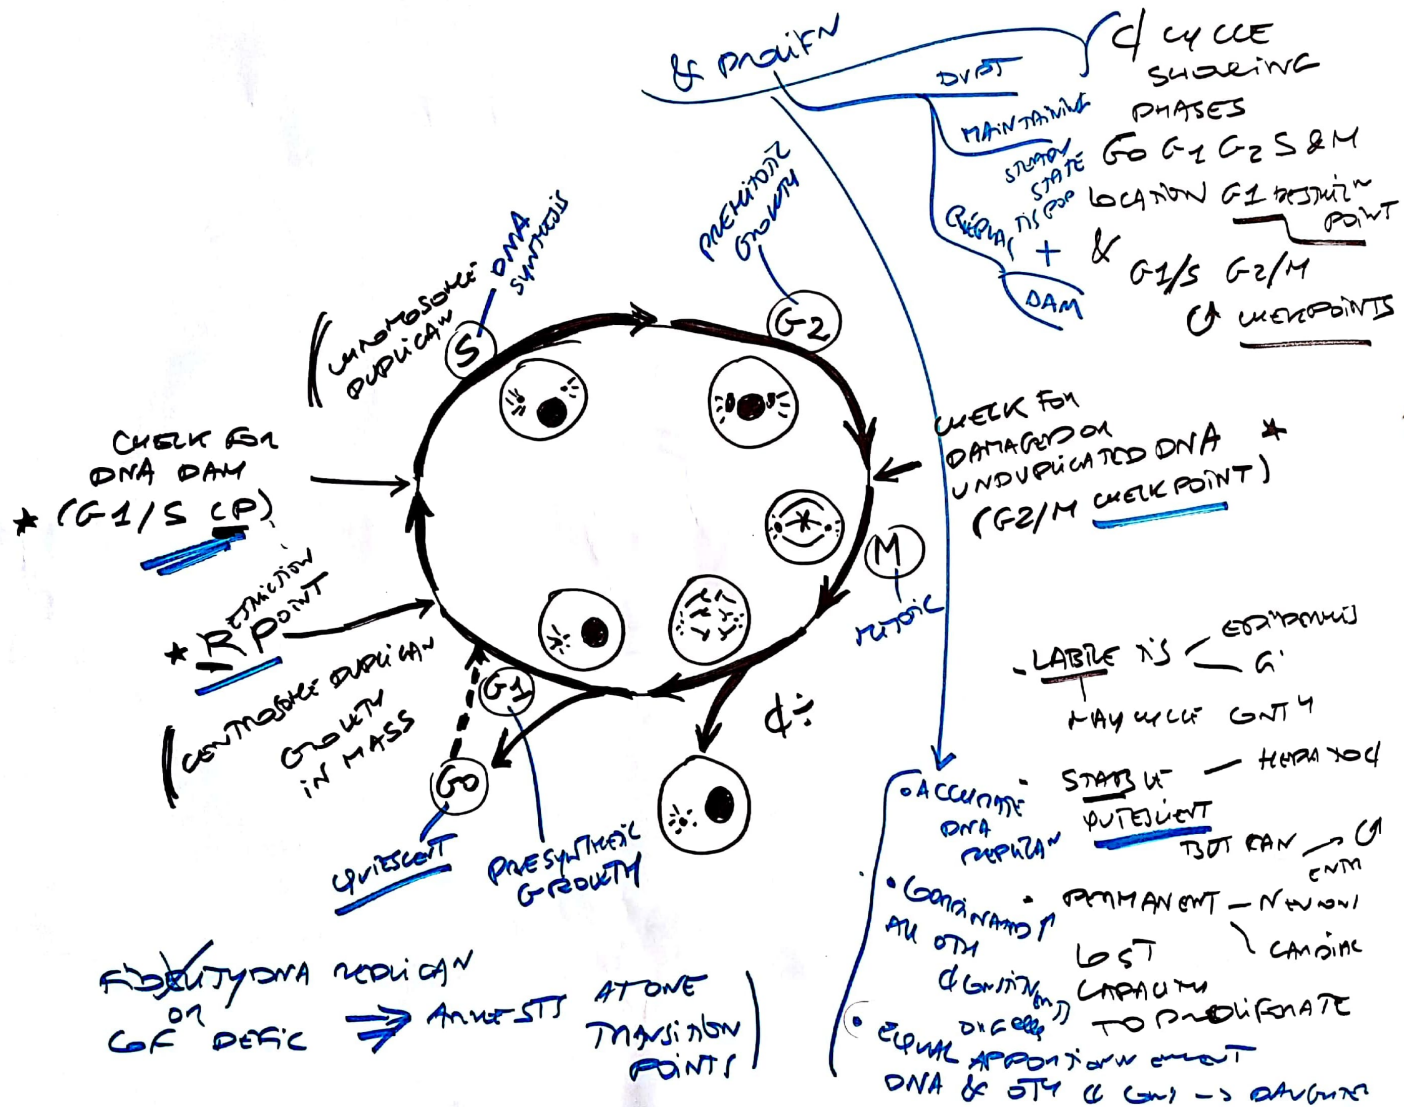 & PROLIFN
DVPT
MAINTAINING
STEADY
STATE
TIS POP
REPLAC
+
DAM
₵ CYCLE
SHOWING
PHASES
G0 G1 G2 S & M
LOCATION G1 RESTRICN
POINT
& G1/S G2/M
CHEKPOINTS
PREMITOTIC
GROWTH
G2
DNA
SYNTHESIS
S
CHROMOSOME
DUPLICAN
CHECK FOR
DNA DAM
★ (G1/S CP)
★ RESTRICTION
POINT
(CENTROSOME DUPLICAN
GROWTH
IN MASS
G1
PRESYNTHETIC
GROWTH
G0
QUIESCENT
CHECK FOR
DAMAGED OR
UNDUPLICATED DNA ★
(G2/M CHECKPOINT)
M
MITOTIC
₵ ÷
- LABILE TIS
EPIDERMIS
GI
MAY CYCLE CONTY
• STABLE — HEPATO₵
QUIESCENT
BUT CAN
ENTR
• PERMANENT — NEURONS
CARDIAC
LOST
CAPACITY
TO PROLIFERATE
• ACCURATE
DNA
REPLICAN
• COORDINATED
ALL OTH
₵ CONSTITUENTS
• EQUAL APPORTIONMENT
DNA & OTH ₵ CONS → DAUGHTER
FIDELITY DNA REPLICAN
OR
GF DEFIC
⇒ ARRESTS
AT ONE
TRANSITION
POINTS